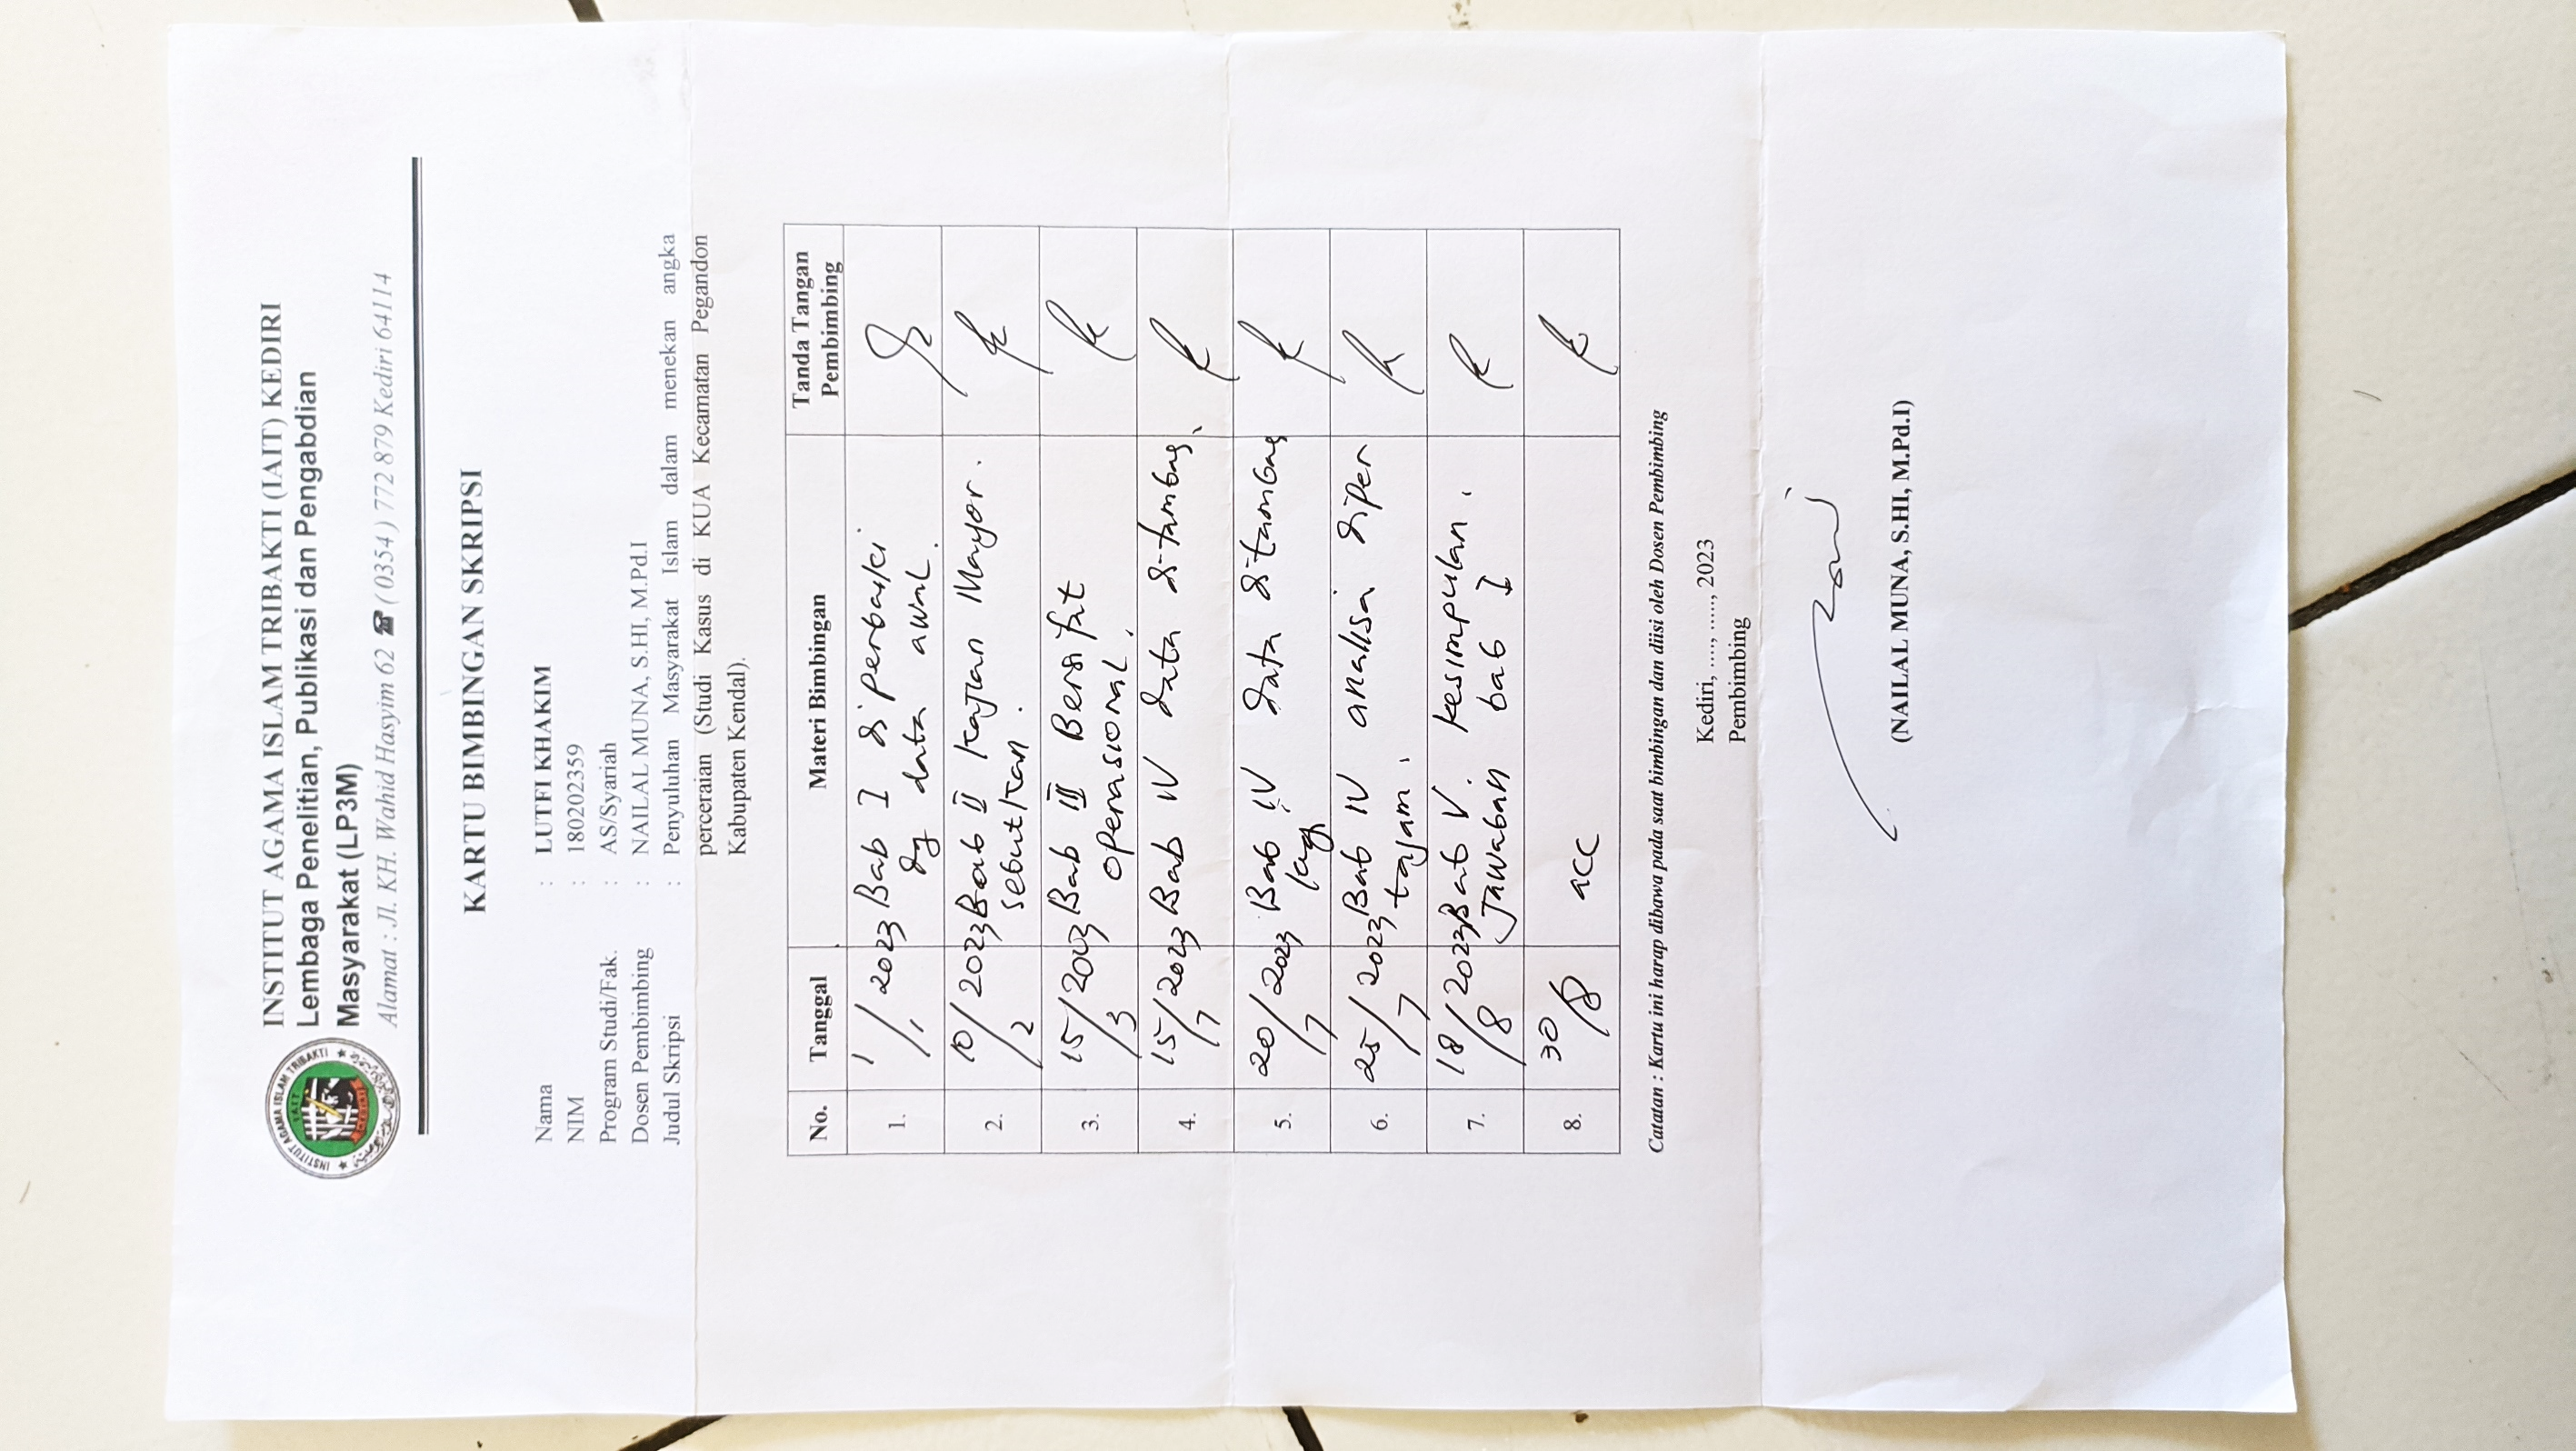 INSTITUT AGAMA ISLAM TRIBAKTI (IAIT) KEDIRI
Lembaga Penelitian, Publikasi dan Pengabdian
Masyarakat (LP3M)
Alamat : Jl. KH. Wahid Hasyim 62 ☎ (0354) 772 879 Kediri 64114
INSTITUT AGAMA ISLAM TRIBAKTI
KARTU BIMBINGAN SKRIPSI
Nama : LUTFI KHAKIM
NIM : 180202359
Program Studi/Fak. : AS/Syariah
Dosen Pembimbing : NAILAL MUNA, S.HI, M.Pd.I
Judul Skripsi : Penyuluhan Masyarakat Islam dalam menekan angka
perceraian (Studi Kasus di KUA Kecamatan Pegandon
Kabupaten Kendal).
No. Tanggal Materi Bimbingan Tanda Tangan
Pembimbing
1. 1/1 2023 Bab I diperbaiki
dg data awal.
2. 10/2 2023 Bab II Kajian Mayor.
sebutkan.
3. 15/3 2023 Bab III Bersifat
operasional.
4. 15/7 2023 Bab IV data ditambag.
5. 20/7 2023 Bab IV data ditambag
lagi
6. 25/7 2023 Bab IV analisa diper
tajam.
7. 18/8 2023 Bab V. kesimpulan.
Jawaban bab I
8. 30/8 acc
Catatan : Kartu ini harap dibawa pada saat bimbingan dan diisi oleh Dosen Pembimbing
Kediri, ...., ......, 2023
Pembimbing
(NAILAL MUNA, S.HI, M.Pd.I)